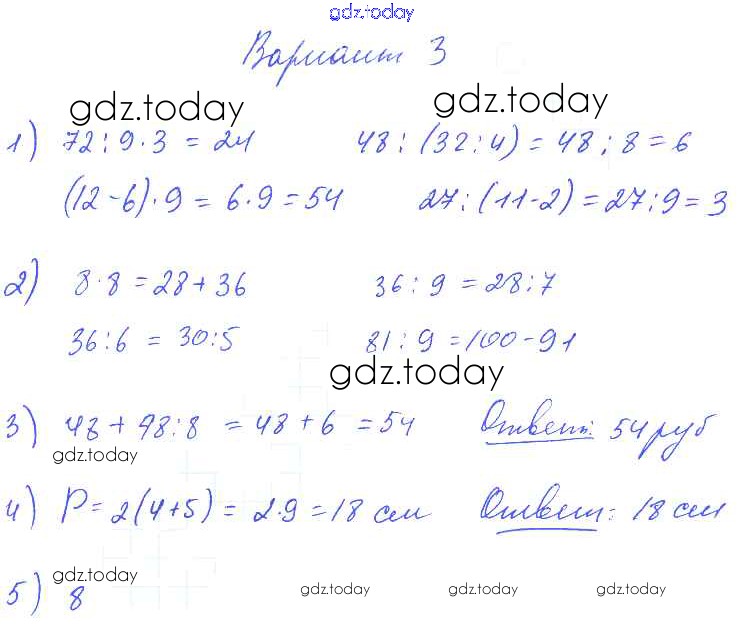 gdz.today
Вариант 3
gdz.today gdz.today
1) 72:9·3 = 24 48:(32:4) = 48:8 = 6
(12-6)·9 = 6·9 = 54 27:(11-2) = 27:9 = 3
2) 8·8 = 28+36 36:9 = 28:7
36:6 = 30:5 81:9 = 100-91
gdz.today
3) 48+48:8 = 48+6 = 54 Ответ: 54 руб
gdz.today
4) P = 2(4+5) = 2·9 = 18 см Ответ: 18 см
gdz.today
5) 8 gdz.today gdz.today gdz.today